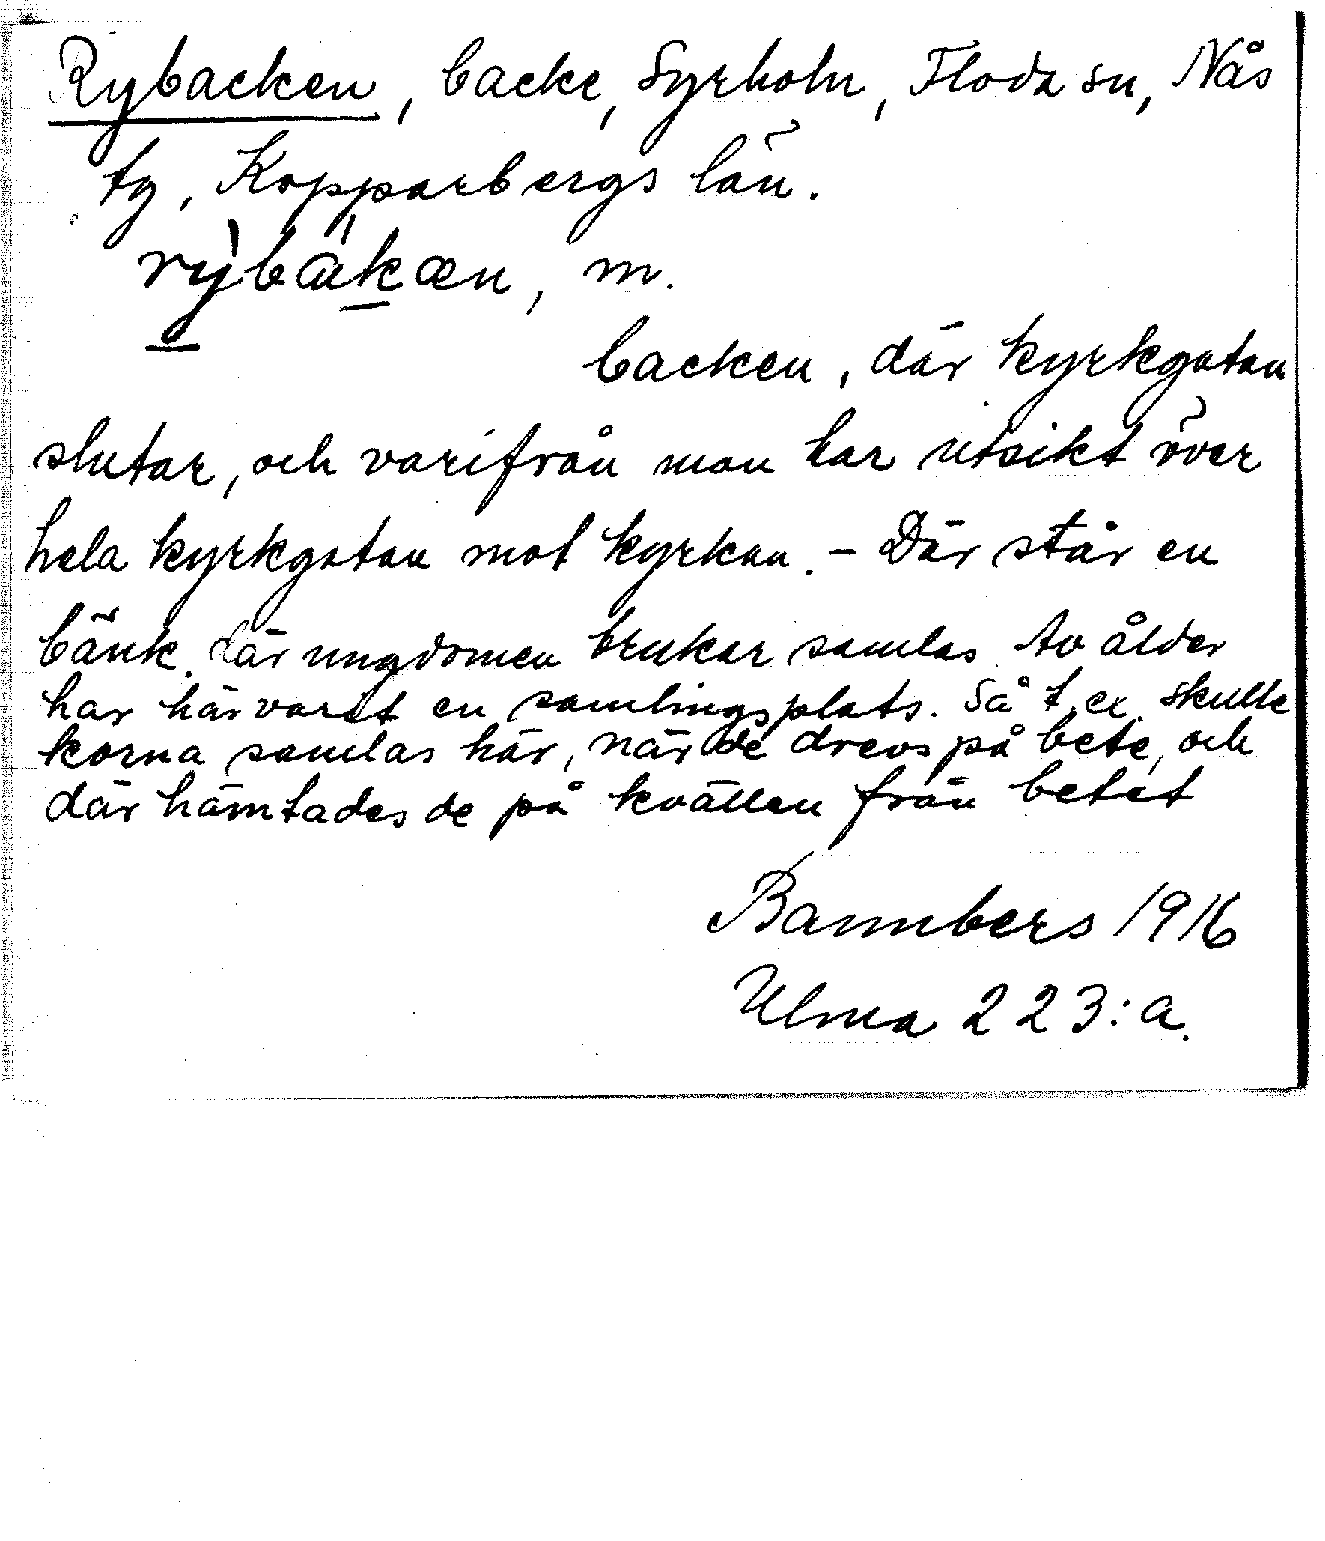 Rybacken, backe, Syrholn, Floda sn, Nås
tg, Kopparbergs län.
rỳbàkæn, m.
backen, där kyrkgatan
slutar, och varifrån man har utsikt över
hela kyrkgatan mot kyrkan. - Där står en
bänk, där ungdomen brukar samlas. Av ålder
har här varit en samlingsplats. Så t. ex. skulle
korna samlas här, när de drevs på bete, och
där hämtades de på kvällen från betet
Bannbers 1916
Ulma 223:a.